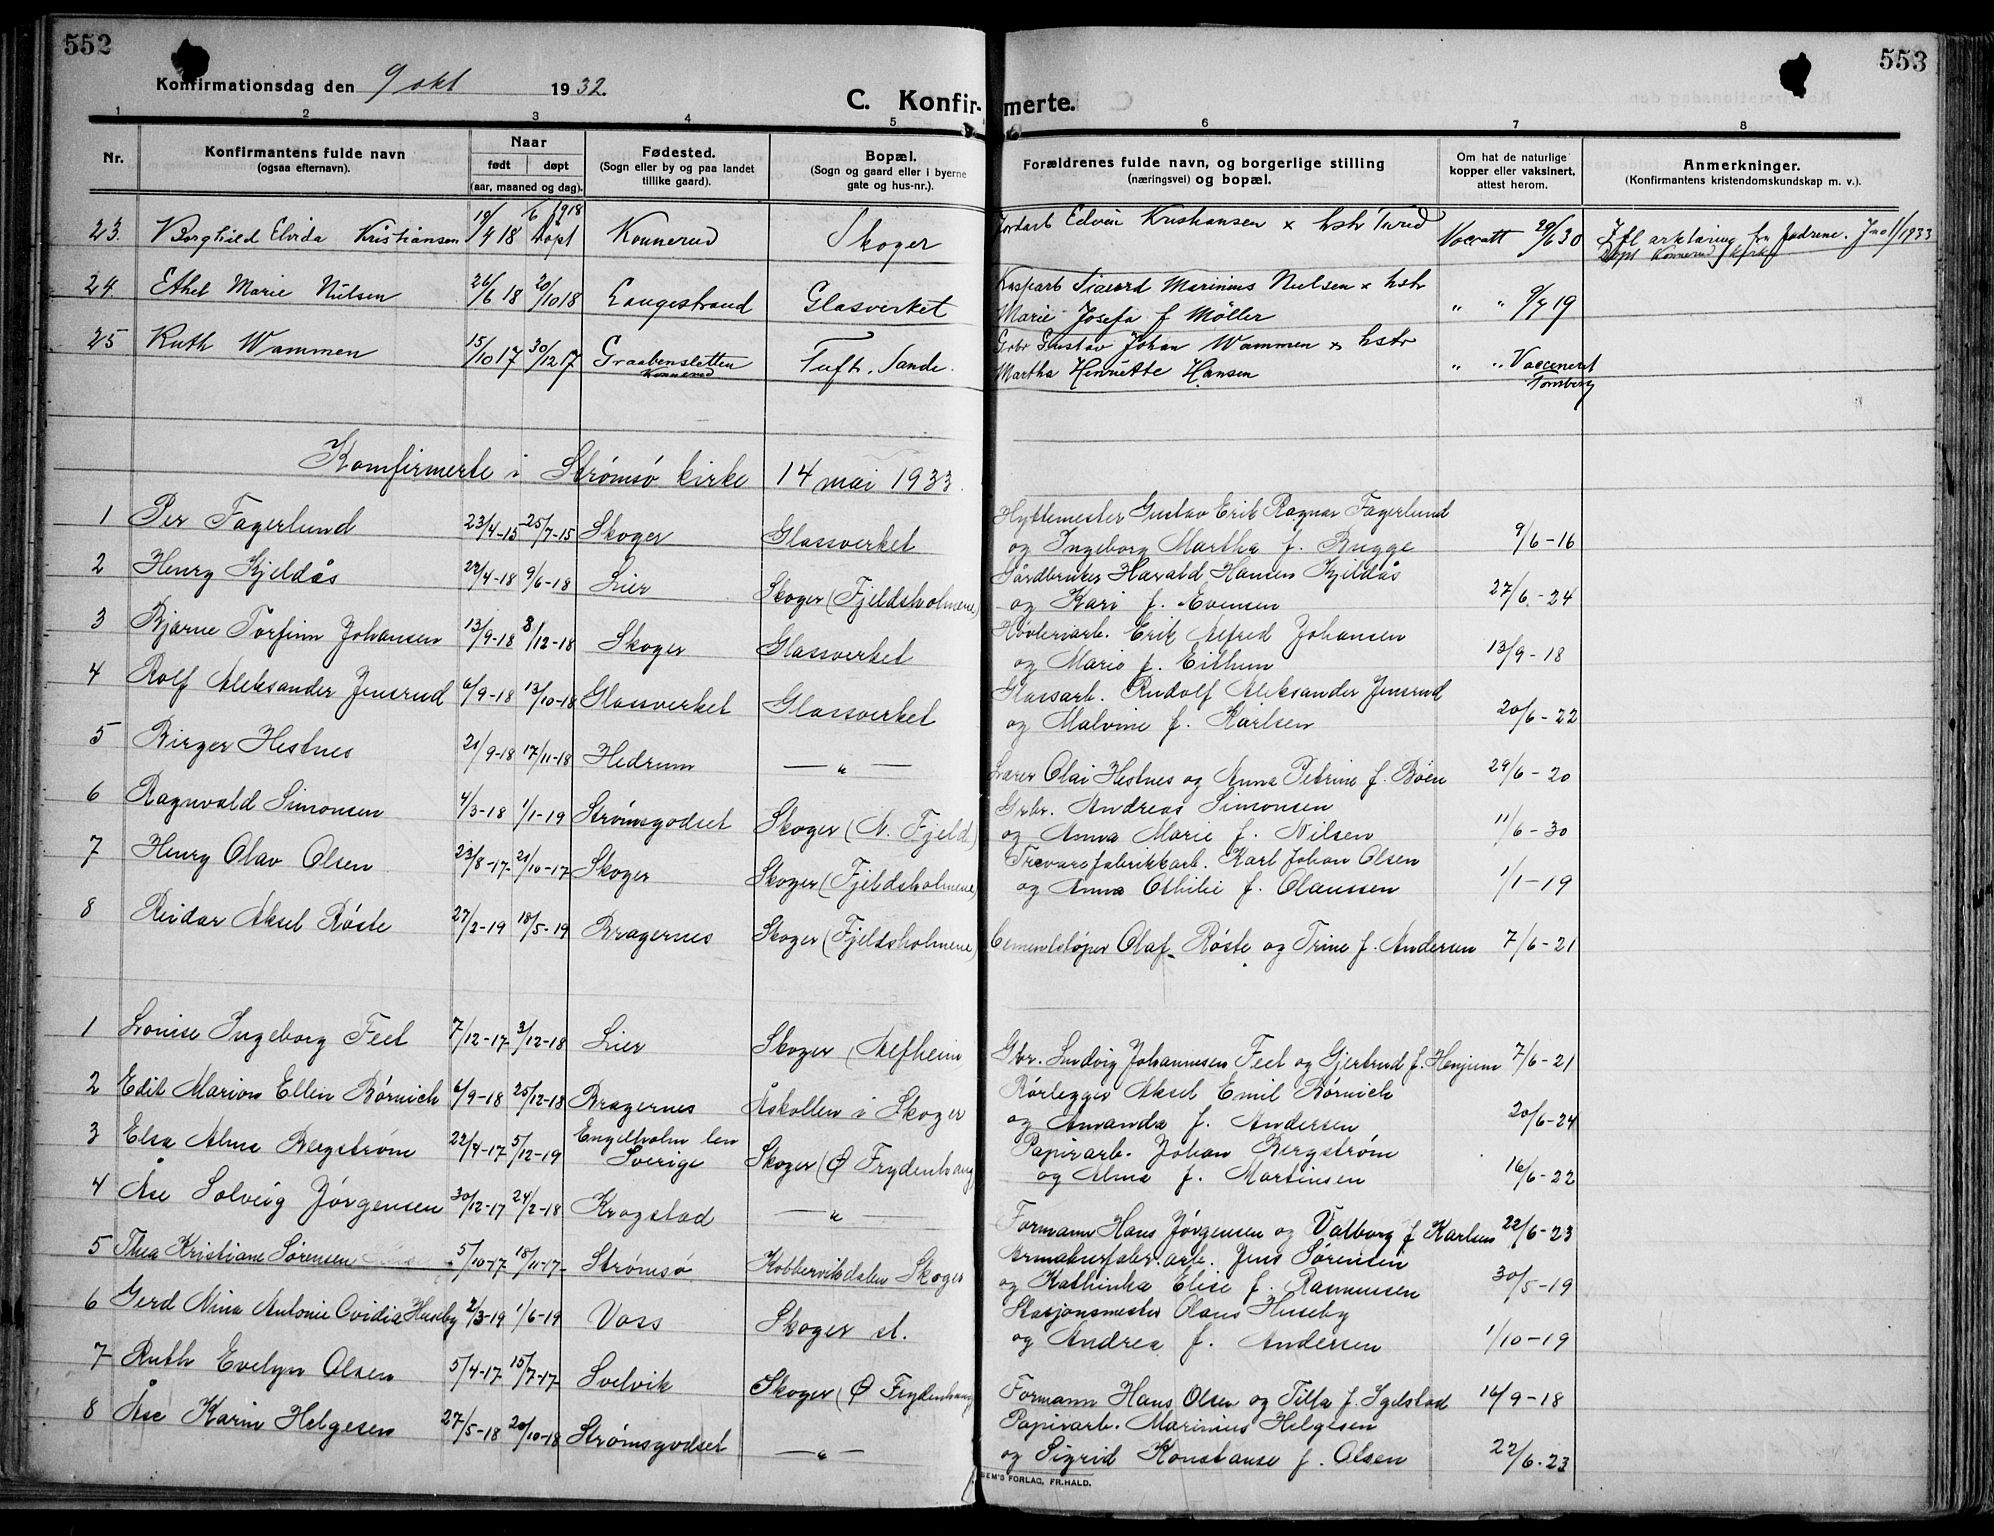 552
553
Konfirmationsdag den 9 okt 1932.
C. Konfirmerte.
1 2 3 4 5 6 7 8
Nr.
Konfirmantens fulde navn
(ogsaa efternavn).
Naar
født døpt
(aar, maaned og dag).
Fødested.
(Sogn eller by og paa landet
tillike gaard).
Bopæl.
(Sogn og gaard eller i byerne
gate og hus-nr.).
Forældrenes fulde navn, og borgerlige stilling
(næringsvei) og bopæl.
Om hat de naturlige
kopper eller vaksinert,
attest herom.
Anmerkninger.
(Konfirmantens kristendomskundskap m. v.).
23. Borghild Elvida Kristiansen 19/4 18 6/ 1918 Døpt Konnerud Skoger Jordarb Edvin Kristiansen x hstr Turid Vacc att 20/6 30
Døpt Konnerud kirke
24. Ethel Marie Nilsen 26/6 18 20/10 18 Langestrand Glasverket Kasparb Sigurd Marinius Nielsen x hstr
Marie Josefa f Møller " " 9/7 19
25 Ruth Wammen 15/10 17 30/12 17 Graabensletten Konnerud Tuft. Sande. Grbr Gustav Johan Wammen x hstr
Martha Henriette Hansen " " Vaccineret Tønsberg
Komfirmerte i Strømsø kirke 14 mai 1933.
1 Per Fagerlund 23/4-15 25/7-15 Skoger Glassverket Hyttemester Gustav Erik Ragnar Fagerlund
og Ingeborg Martha f. Bugge 9/6-16
2 Henry Kjeldås 29/4-18 9/6-18 Lier Skoger (Fjeldsholmene) Gårdbruker Harald Hansen Kjeldås
og Kari f. Evensen 27/6-24
3 Bjarne Torfinn Johansen 13/9-18 8/12-18 Skoger Glassverket Høvleriarb. Erik Alfred Johansen
og Marie f. Eithun 13/9-18
4 Rolf Aleksander Jensrud 6/9-18 13/10-18 Glassverket Glassverket Glassarb. Rudolf Aleksander Jensrud
og Malvine f. Karlsen 20/6-22
5 Birger Hestnes 21/9-18 17/11-18 Hedrum — " — Lærer Olai Hestnes og Anna Petrine f. Bøen 29/6-20
6 Ragnvald Simonsen 4/3-18 1/1-19 Strømsgodset Skoger (N. Fjeld) Grbr. Andreas Simonsen
og Anna Marie f. Nilsen 11/6-30
7 Henry Olav Olsen 23/8-17 21/10-17 Skoger Skoger (Fjeldsholmene) Trevarefabrikkarb. Karl Johan Olsen
og Anna Othilie f. Olaussen 1/1-19
8 Reidar Aksel Røste 27/2-19 18/5-19 Bragernes Skoger (Fjeldsholmene) Cementstøper Olaf Røste og Trine f. Andersen 7/6-21
1 Louise Ingeborg Feet 7/12-17 3/12-18 Lier Skoger (Alfheim) Gbr. Ludvig Johannesen Feet og Gjertrud f. Henjum 7/6-21
2 Edit Marion Ellen Børnich 6/9-18 25/12-18 Bragernes Åskollen i Skoger Rørlegger Aksel Emil Børnich
og Amanda f. Andersen 20/6-24
3 Elsa Alma Bergstrøm 22/4-17 5/12-19 Engelholm len
Sverige Skoger (Ø Frydenhaug Papirarb. Johan Bergstrøm
og Alma f. Martinsen 16/6-22
4 Åse Solveig Jørgensen 30/12-17 24/2-18 Krogstad — " — Formann Hans Jørgensen og Valborg f Karlsen 22/6-23
5 Thea Kristiane Sørensen 5/10-17 18/11-17 Strømsø Kobbervikdalen Skoger Armaturfabr.arb. Jens Sørensen
og Kathinka Elise f. Rasmussen 30/5-19
6 Gerd Nina Antonie Ovidia Huseby 2/3-19 1/6-19 Voss Skoger st. Stasjonsmester Olaus Huseby
og Andrea f. Andersen 1/10-19
7 Ruth Evelyn Olsen 5/4-17 15/7-17 Svelvik Skoger (Ø Frydenhaug Formann Hans Olsen og Tilla f. Igelstad 16/9-18
8 Åse Karin Helgesen 27/5-18 20/10-18 Strømsgodset — " — Papirarb. Marinius Helgesen
og Sigrid Konstanse f. Olsen 22/6-23
SEM'S FORLAG, FR.HALD.